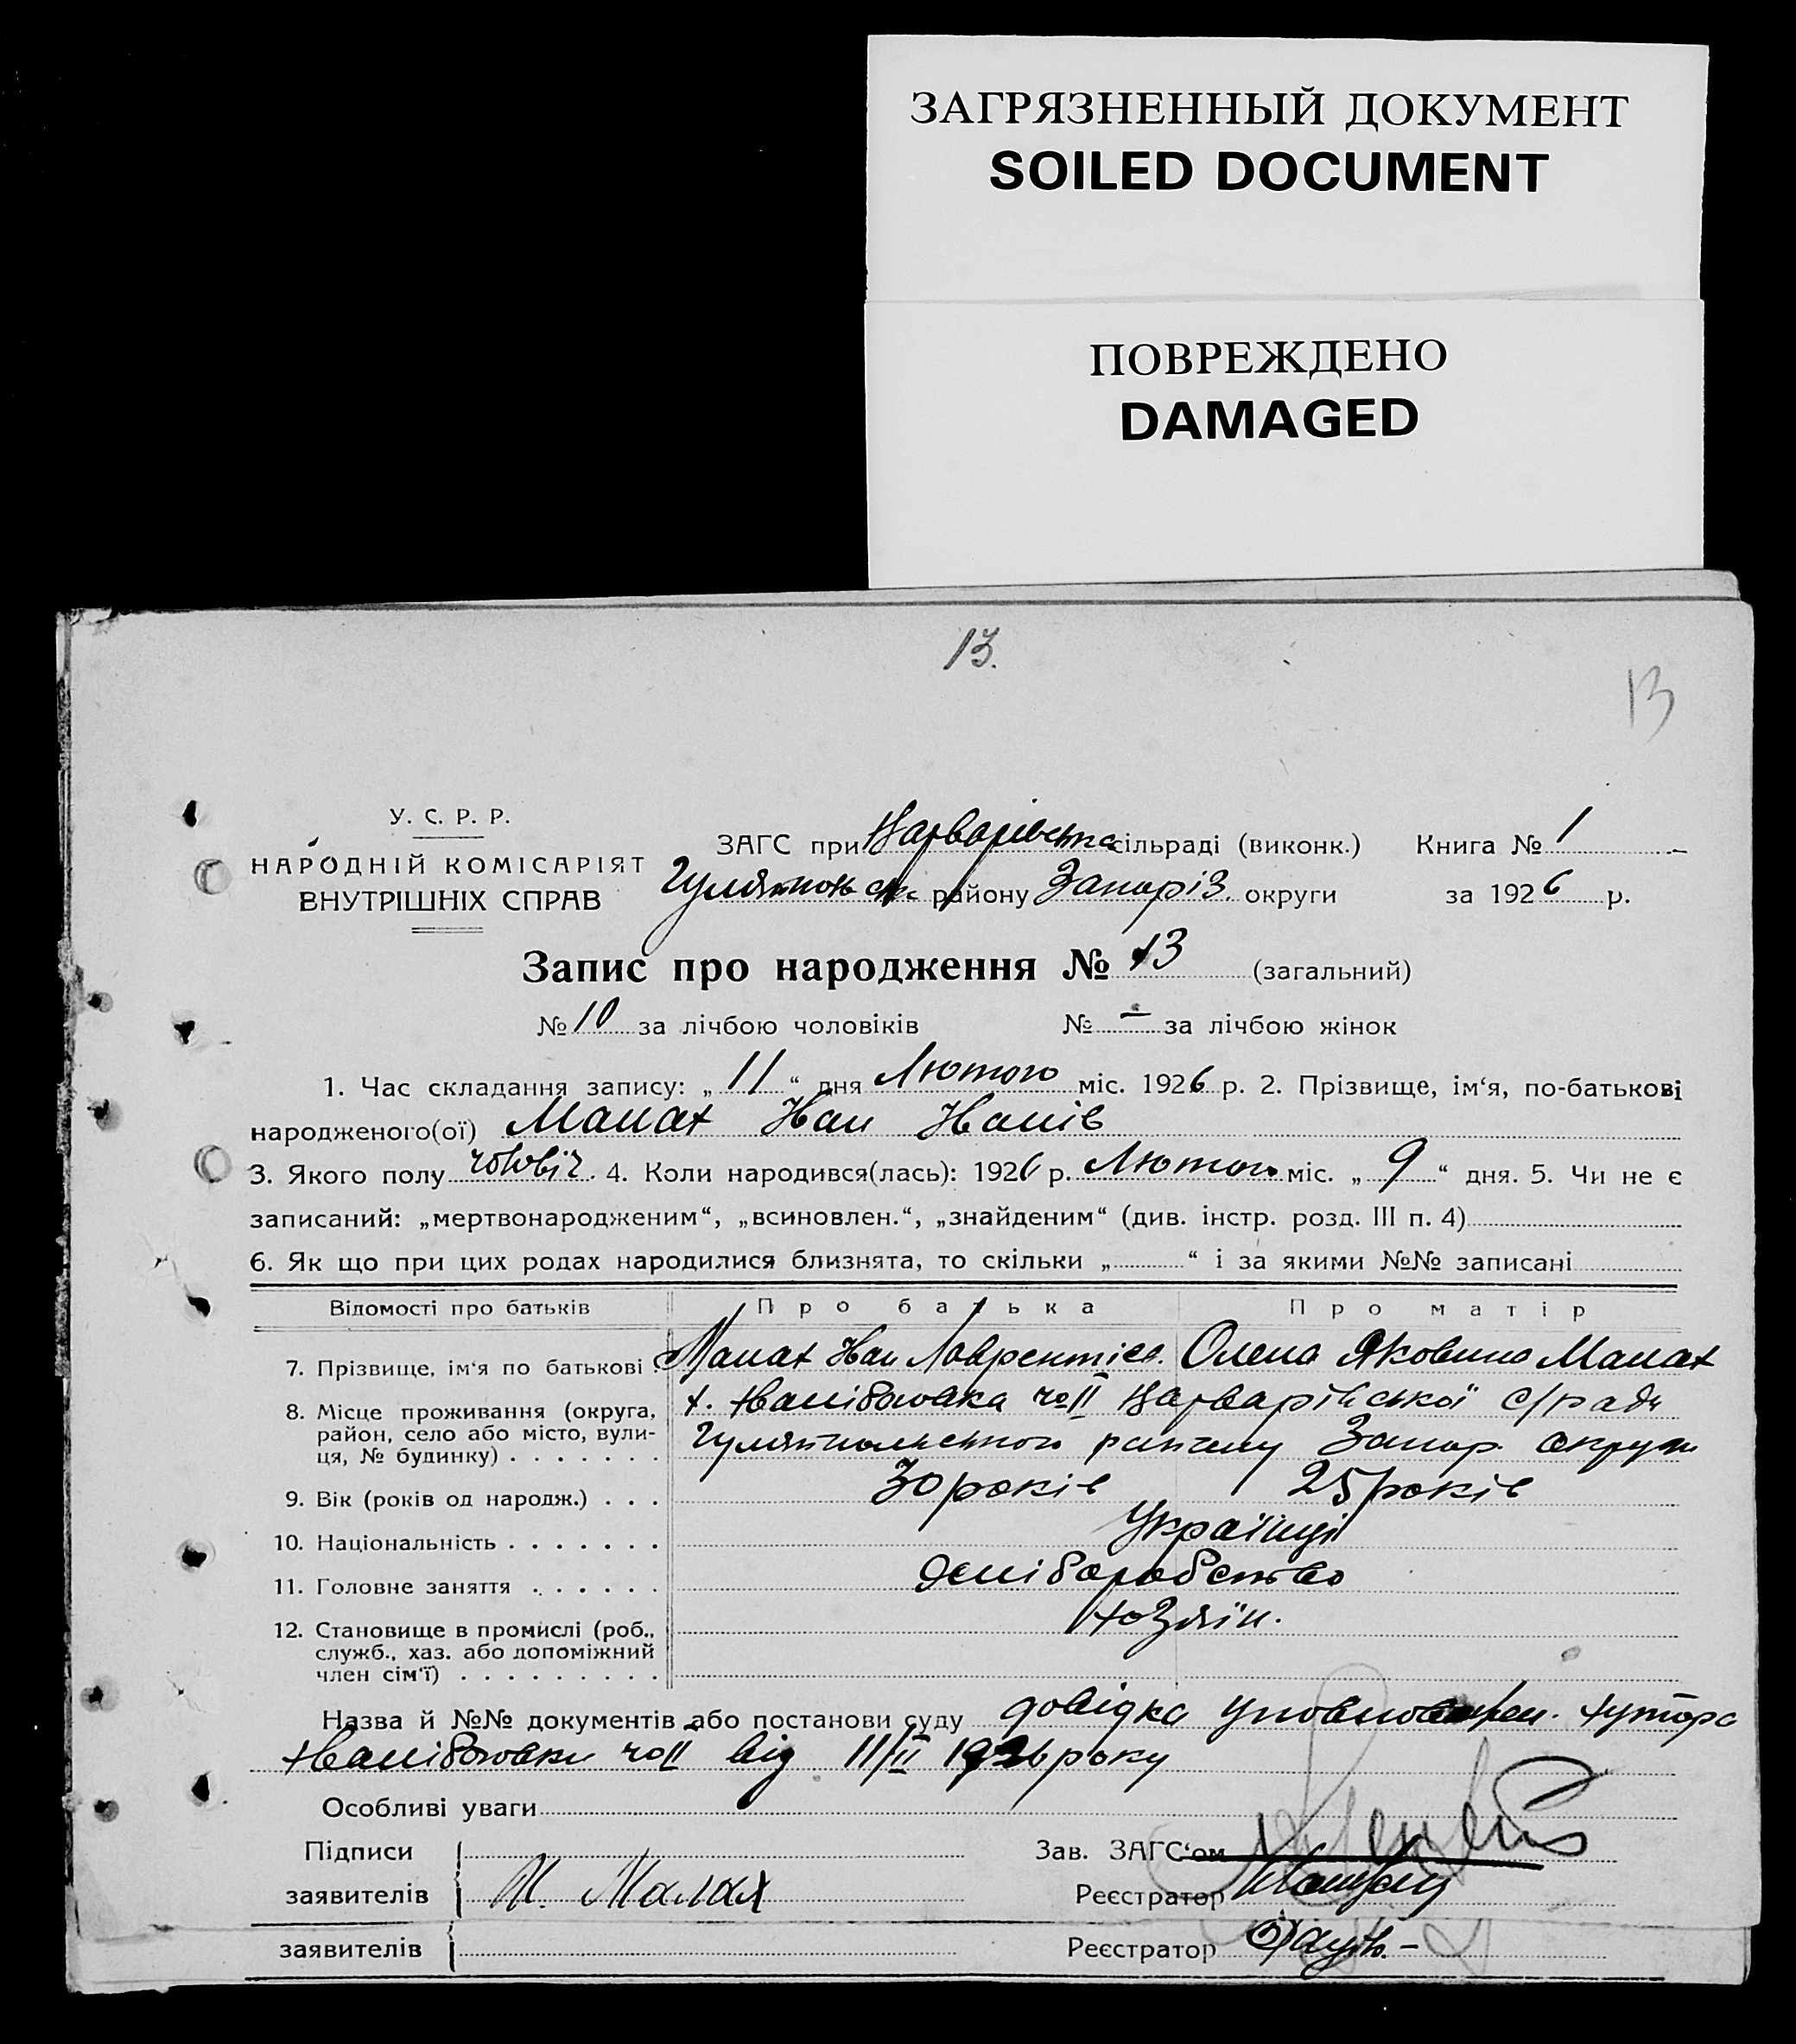 ЗАГРЯЗНЕННЫЙ ДОКУМЕНТ
SOILED DOCUMENT
ПОВРЕЖДЕНО
DAMAGED
13.
13
У. С. Р. Р.
НАРОДНІЙ КОМІСАРІЯТ
ВНУТРІШНІХ СПРАВ
ЗАГС при сільраді (виконк.) Книга № 1
району Запоріз. округи за 1926 р.
Запис про народження № 13 (загальний)
№ 10 за лічбою чоловіків № - за лічбою жінок
1. Час складання запису: „ 11 “ дня Лютого міс. 1926 р. 2. Прізвище, ім‘я, по-батькові
народженого(ої) Малах Иван Иванів
3. Якого полу чоловіч. 4. Коли народився(лась): 1926 р. Лютого міс. „ 9 “ дня. 5. Чи не є
записаний: „мертвонародженим“, „всиновлен.“, „знайденим“ (див. інстр. розд. III п. 4)
6. Як що при цих родах народилися близнята, то скільки „ “ і за якими №№ записані
Відомості про батьків Про батька Про матір
7. Прізвище, ім‘я по батькові Малах Иван Лаврентієв. Олена Яковина Малах
8. Місце проживання (округа, район, село або місто, вулиця, № будинку) х. с/ради
району Запор. округи
9. Вік (років од народж.) 30 років 25 років
10. Національність Українці
11. Головне заняття хліборобство
12. Становище в промислі (роб., служб., хаз. або допоміжний член сім‘ї) хозяїн.
Назва й №№ документів або постанови суду довідка уповноважен. хутора
від 11/II 1926 року
Особливі уваги
Підписи
заявителів И. Малах
Зав. ЗАГС‘ом
Реєстратор
заявителів Реєстратор